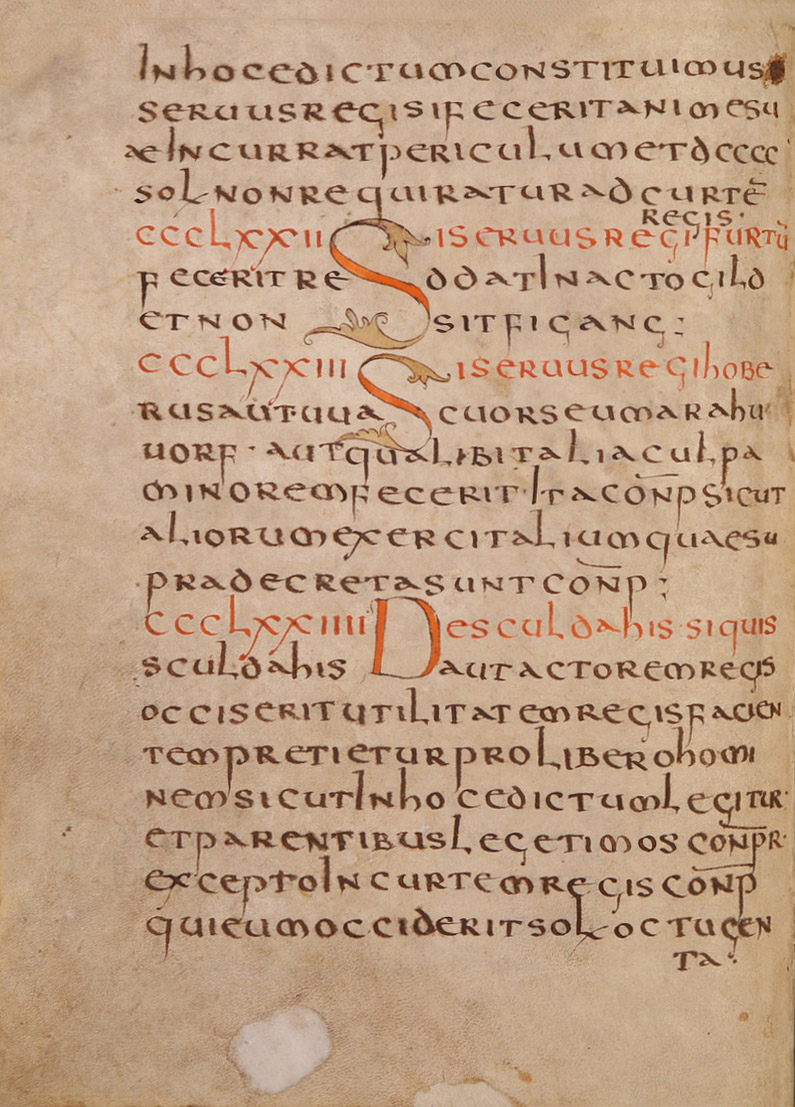 Inhocedictumconstituimus
seruusregisifeceritanimesu
aeIncurratpericulumetdcccc
sol nonrequiraturadcurtē
regis·
ccclxxii Siseruusregi furtū
feceritreddatInactogild
etnon sitfigang:
ccclxxiii Siseruusregihobe
rusautuuacuorseumarahu
uorf · autqualibitaliaculpa
minoremfecerit·Itacon̄psicut
aliorumexercitaliumquaesu
pradecretasuntcon̄p:
ccclxxiiii Desculdahis·siquis
sculdahis autactoremregis
occiseritutilitatemregisfacien
tempretieturproliberohomi
nemsicutInhocedictumlegitur·
etparentibuslegetimoscon̄pr·
exceptoIncurtemregiscon̄p
quieumoccideritsol octugen
ta·